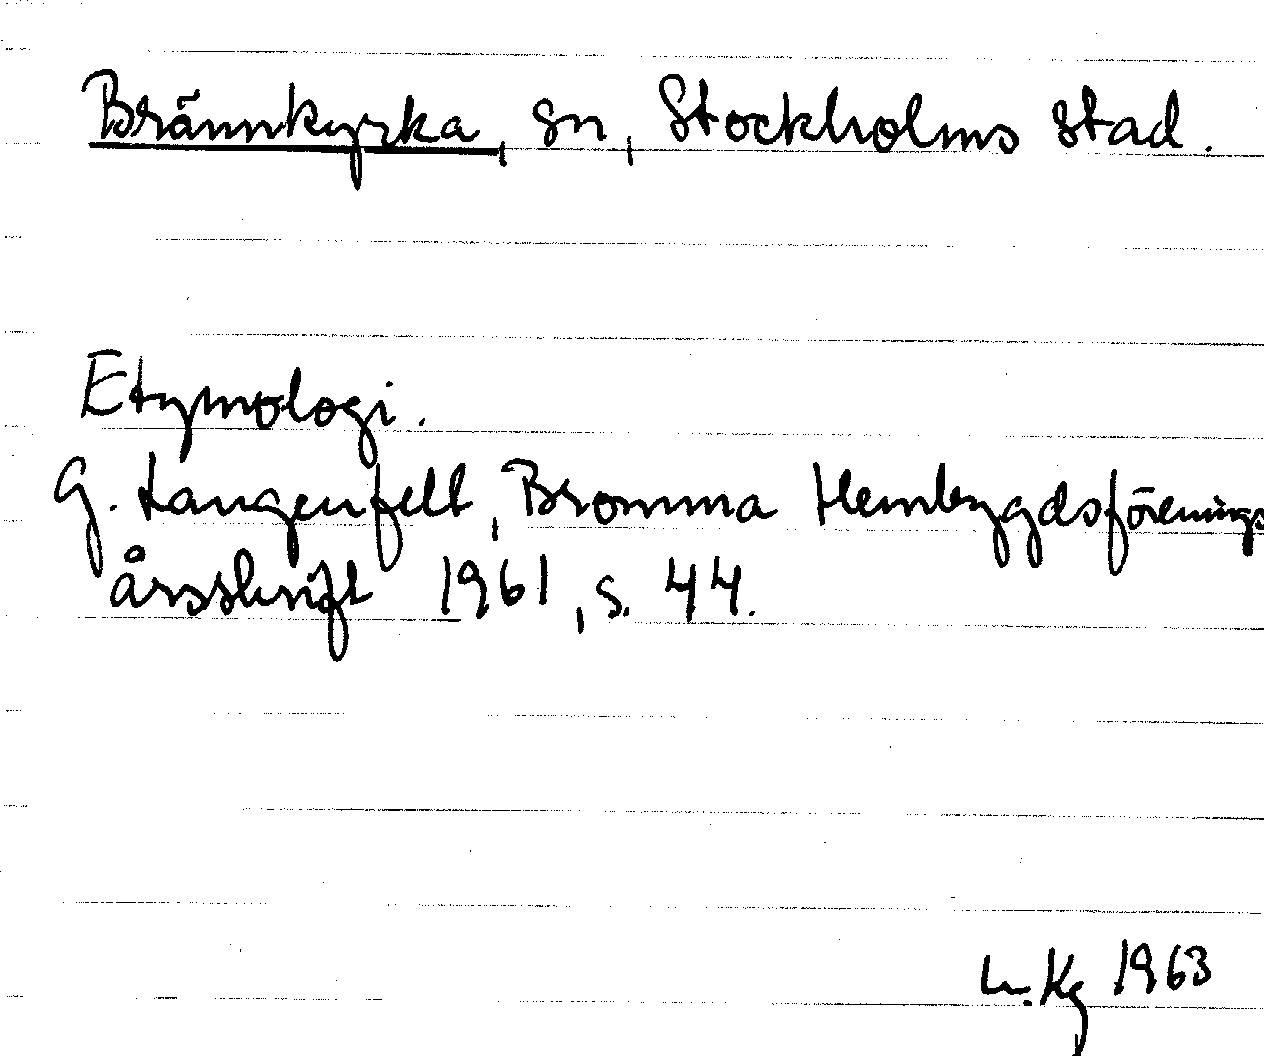 Brännkyrka, sn, Stockholms stad.
Etymologi.
G. Langenfelt, Bromma Hembygdsförenings
årsskrift 1961, s. 44.
1963